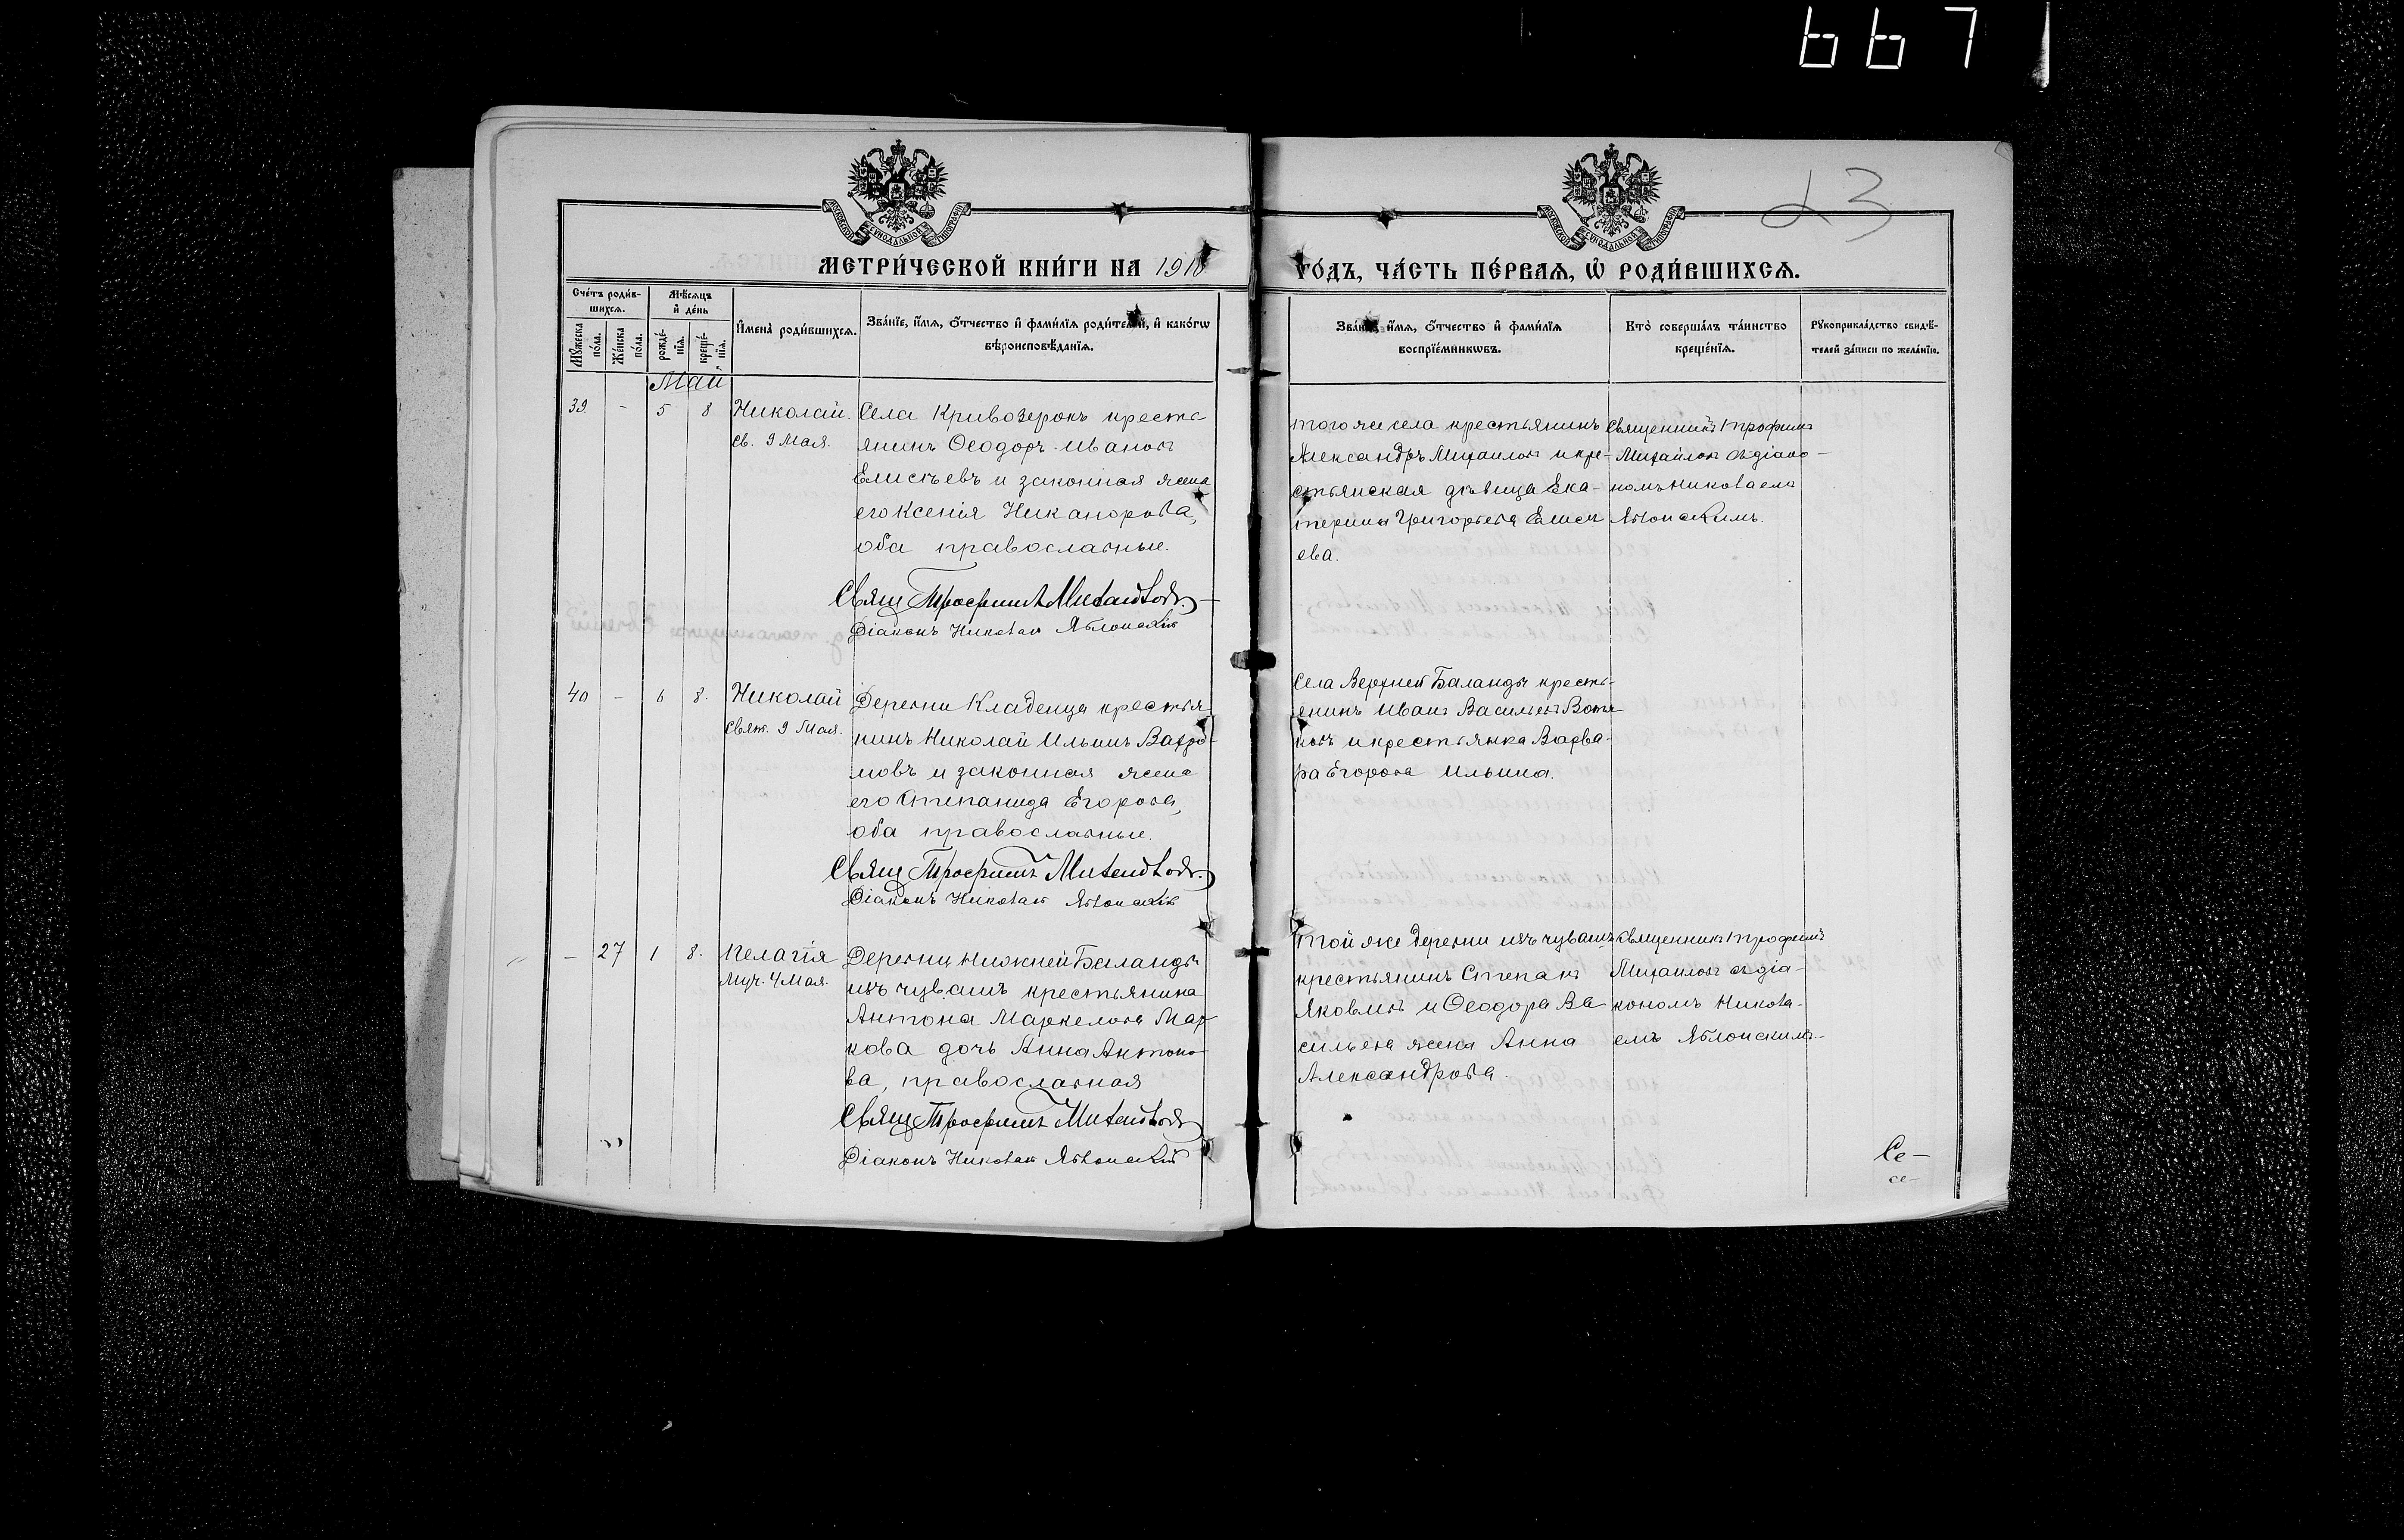 667
23
МЕТРИ́ЧЕСКОЙ КНИ́ГИ НА 1910 ГО́ДЪ, ЧА́СТЬ ПЕ́РВАЯ, Ѡ РОДИ́ВШИХСЯ.
Сче́тъ роди́в-
шихся.
Му́жеска по́ла.
Же́нска по́ла.
Мѣ́сяцъ
и де́нь
рожде́-
нія.
креще́-
нія.
Имена̀ роди́вшихся.
Зва́ніе, и́мя, о́тчество и фами́лія роди́телей, и како́гѡ
вѣроисповѣ́данія.
Зва́ніе, и́мя, о́тчество и фами́лія
воспріе́мникѡвъ.
Кто̀ соверша́лъ та́инство
креще́нія.
Рукоприкла́дство свидѣ́-
телей за́писи по жела́нію.
Май
39. - 5 8
Николай.
Св. 9 Мая.
Села Кривозерокъ кресть-
янинъ Ѳеодоръ Ивановъ
Елисѣевъ и законная жена
его Ксенія Никанорова,
оба православные.
Свящ Трофимъ Михайловъ.
Діаконъ Николай Яблонскій
того же села крестьянинъ
Александръ Михаиловъ и кре-
стьянская дѣвица Ека-
терина Григорьева Елисѣ
ева.
Священникъ Трофимъ
Михайловъ съ діако-
номъ Николаемъ
Яблонскимъ.
40 - 6 8.
Николай
Свят. 9 Мая.
Деревни Кладенца крестья
нинъ Николай Ильинъ Вахро-
мовъ и законная жена
его Степанида Егорова,
оба православные.
Свящ Трофимъ Михайловъ.
Діаконъ Николай Яблонскій
Села Верхней Баланды кресть-
янинъ Иванъ Васильевъ Вотя
ковъ и крестьянка Варва-
ра Егорова Ильина.
- 27 1 8.
Пелагія
Муч. 4 Мая.
Деревни Нижней Баланды
изъ чувашъ крестьянина
Антона Маркелова Мар
кова дочь Анна Антоно-
ва, православная
Свящ Трофимъ Михайловъ
Діаконъ Николай Яблонскій
Той же деревни изъ чувашъ
крестьянинъ Степанъ
Яковлевъ и Ѳеодора Ва
сильева жена Анна
Александрова.
Священникъ Трофимъ
Михаиловъ съ діа-
кономъ Никола-
емъ Яблонскимъ-
Се-
се-